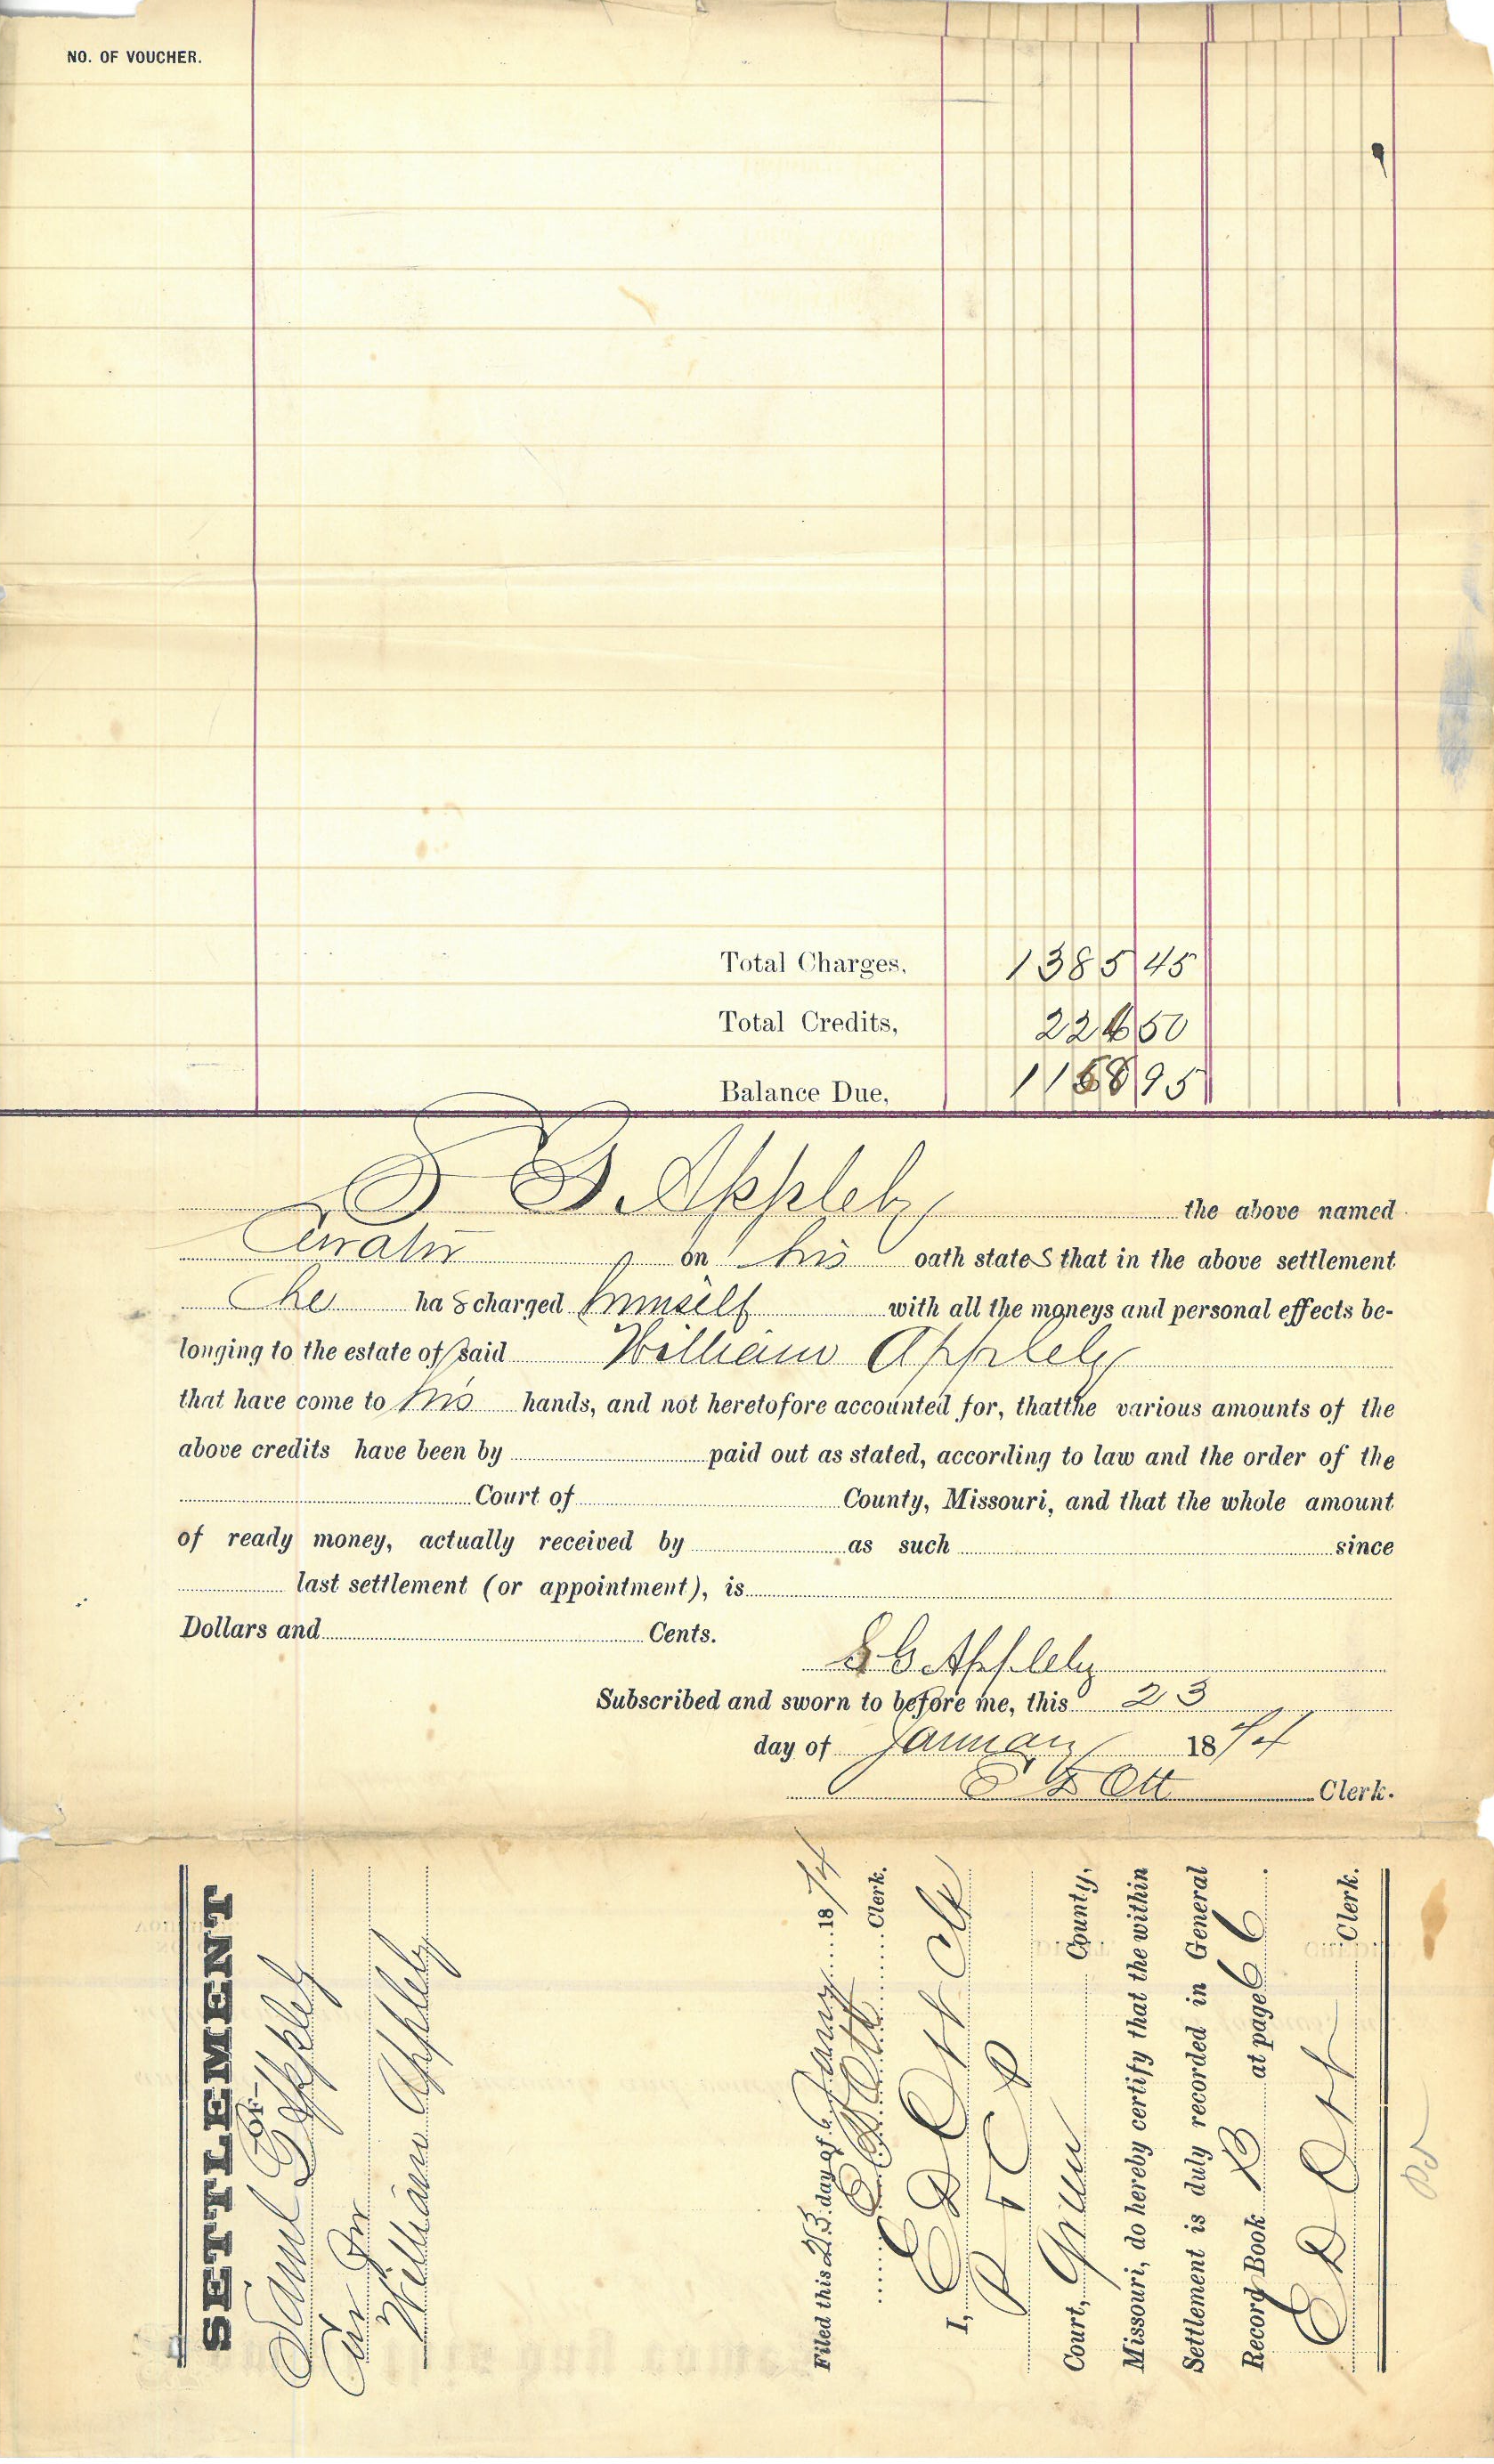 NO. OF VOUCHER.
Total Charges, 1385 45
Total Credits, 226 50
Balance Due, 1158 95
S G. Appleby the above named
Curator on his oath states that in the above settlement
he has charged himself with all the moneys and personal effects be-
longing to the estate of said William Appleby
that have come to his hands, and not heretofore accounted for, thatthe various amounts of the
above credits have been by paid out as stated, according to law and the order of the
Court of County, Missouri, and that the whole amount
of ready money, actually received by as such since
last settlement (or appointment), is
Dollars and Cents.
S G Appleby
Subscribed and sworn to before me, this 23
day of January 1874
E D Ott Clerk.
SETTLEMENT
—OF—
Saml G Appleby
Cur for
William Appleby
Filed this 23 day of Jany 1874
E D Ott Clerk.
I, E D Ott Clk
P C
Court, Green County,
Missouri, do hereby certify that the within
Settlement is duly recorded in General
Record Book B at page 66.
E D Ott Clerk.